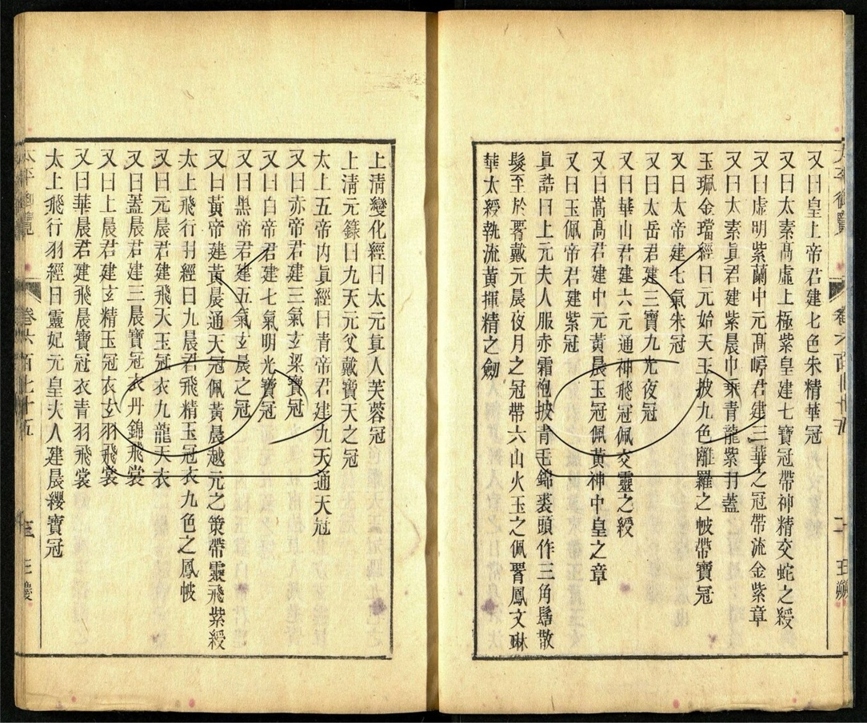 又曰皇上帝君建七色朱精華冠
又曰太素高虛上極紫皇建七寶冠帶神精交蛇之綬
又曰虛明紫蘭中元高崢君建三華之冠帶流金紫章
又曰太素眞君建紫晨巾乘青龍紫羽蓋
玉珮金璫經曰元始天王披九色離羅之帔帶寶冠
又曰太帝建七氣朱冠
又曰太岳君建三寶九光夜冠
又曰華山君建六元通神飛冠佩交靈之綬
又曰嵩高君建中元黃晨玉冠佩黃神中皇之章
又曰玉佩帝君建紫冠
眞誥曰上元夫人服赤霜袍披青毛錦裘頭作三角髻散
髮至於腰戴元晨夜月之冠帶六山火玉之佩腰鳳文琳
華太綬執流黃揮精之劒
上清變化經曰太元眞人芙蓉冠
上清元籙曰九天元父戴寶天之冠
太上五帝內眞經曰青帝君建九天通天冠
又曰赤帝君建三氣玄梁寶冠
又曰白帝君建七氣明光寶冠
又曰黑帝君建五氣玄晨之冠
又曰黃帝建黃晨通天冠佩黃晨越元之策帶靈飛紫綬
太上飛行羽經曰九晨君飛精玉冠衣九色之鳳帔
又曰元晨君建飛天玉冠衣九龍天衣
又曰蓋晨君建三晨寶冠衣丹錦飛裳
又曰上晨君建玄精玉冠衣玄羽飛裳
又曰華晨君建飛晨寶冠衣青羽飛裳
太上飛行羽經曰靈妃元皇夫人建晨纓寶冠
太平御覽
卷六百七十五